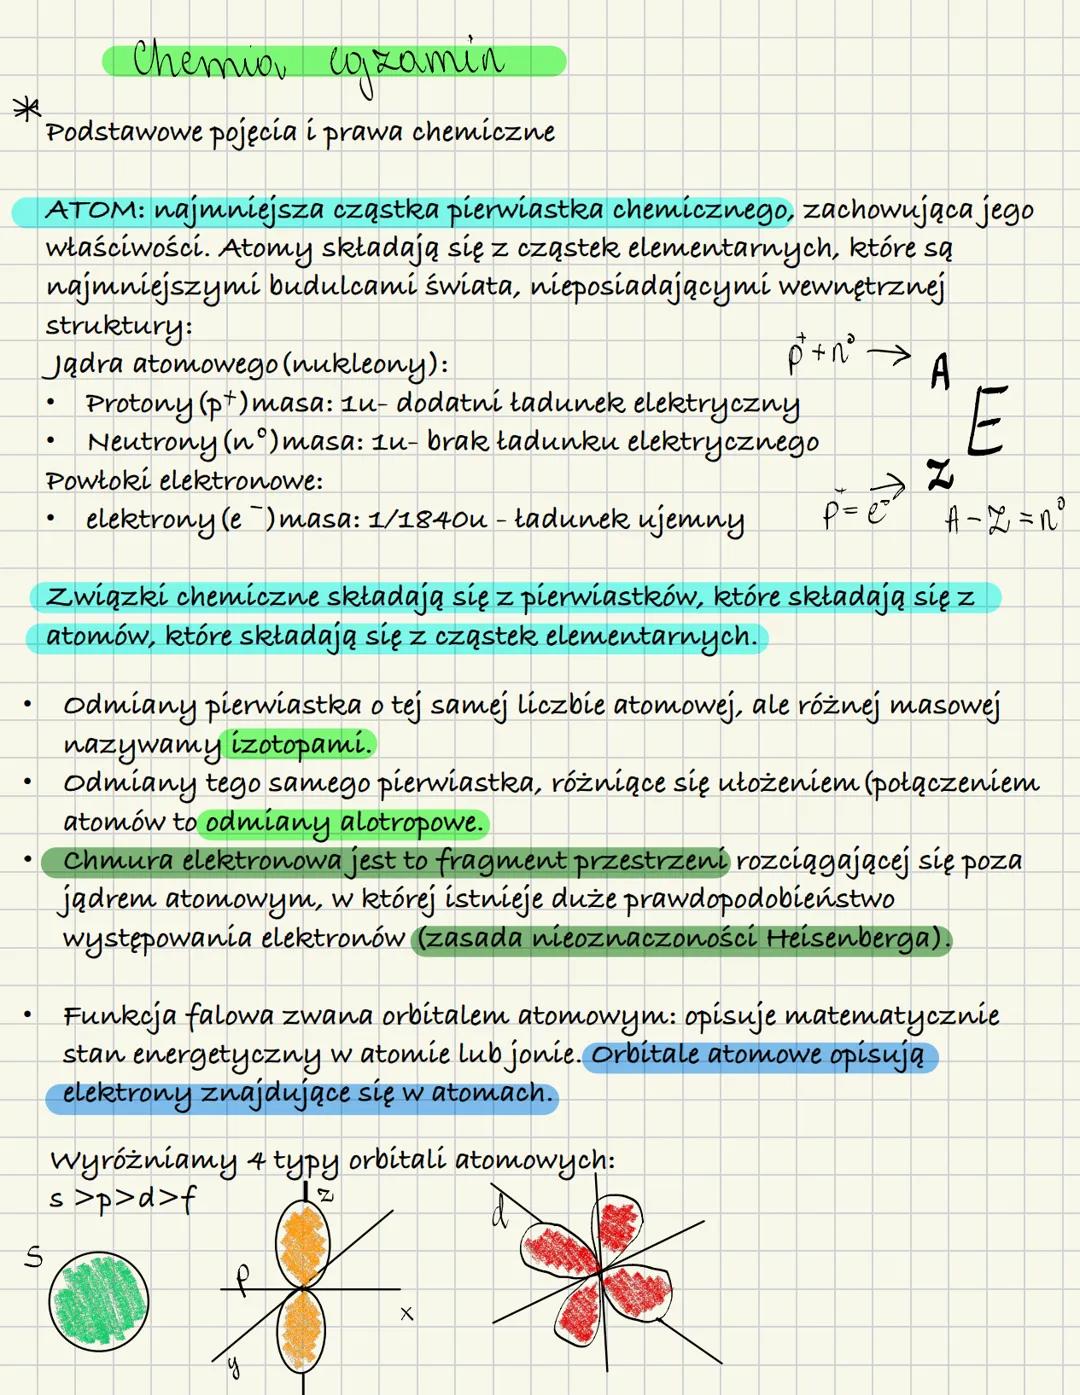 Chemia egzamin
*
Podstawowe pojęcia i prawa chemiczne
ATOM: najmniejsza cząstka pierwiastka chemicznego, zachowująca jego
właściwości. Atomy składają się z cząstek elementarnych, które są
najmniejszymi budulcami świata, nieposiadającymi wewnętrznej
struktury:
Jądra atomowego (nukleony):
• Protony (p⁺) masa: 1u- dodatni ładunek elektryczny
• Neutrony (n°) masa: 1u- brak ładunku elektrycznego
Powłoki elektronowe:
• elektrony (e⁻) masa: 1/1840u - ładunek ujemny
p⁺ + n⁰ → A
E
p⁺ = e⁻ → Z
A - Z = n⁰
Związki chemiczne składają się z pierwiastków, które składają się z
atomów, które składają się z cząstek elementarnych.
• Odmiany pierwiastka o tej samej liczbie atomowej, ale różnej masowej
nazywamy izotopami.
• Odmiany tego samego pierwiastka, różniące się ułożeniem (połączeniem
atomów to odmiany alotropowe.
• Chmura elektronowa jest to fragment przestrzeni rozciągającej się poza
jądrem atomowym, w której istnieje duże prawdopodobieństwo
występowania elektronów (zasada nieoznaczoności Heisenberga).
• Funkcja falowa zwana orbitalem atomowym: opisuje matematycznie
stan energetyczny w atomie lub jonie. Orbitale atomowe opisują
elektrony znajdujące się w atomach.
Wyróżniamy 4 typy orbitali atomowych:
s >p>d>f
S
p
z
x
y
d